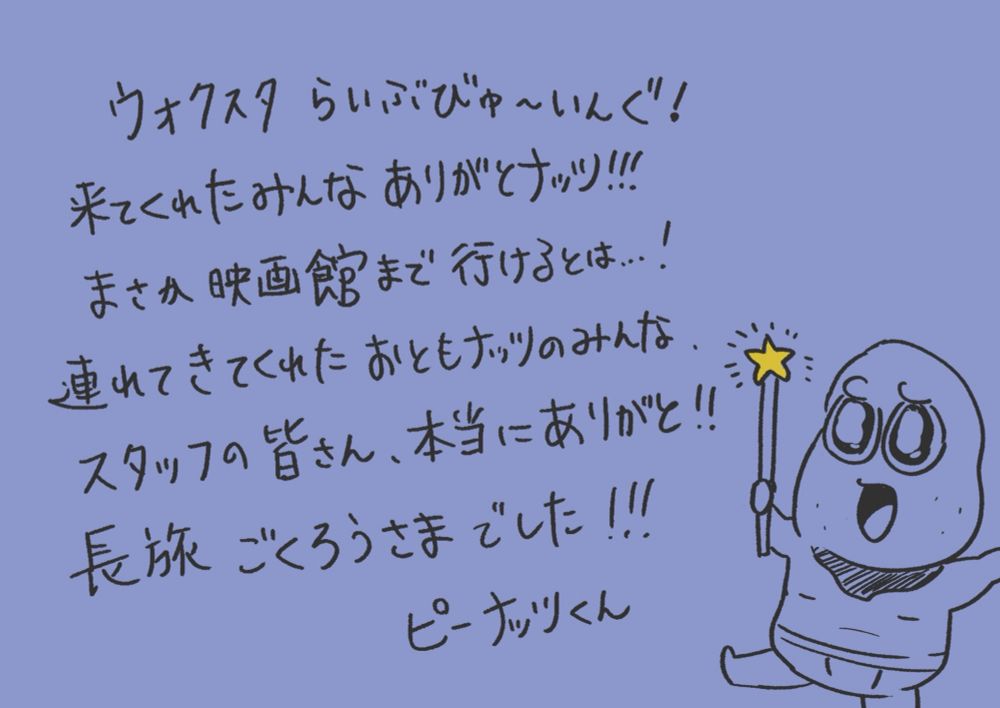 ウォクスタ らいぶびゅ～いんぐ!
来てくれたみんな ありがとナッツ!!!
まさか 映画館まで 行けるとは…!
連れてきてくれた おともナッツのみんな、
スタッフの皆さん、本当にありがと!!
長旅 ごくろうさまでした!!!
ピーナッツくん